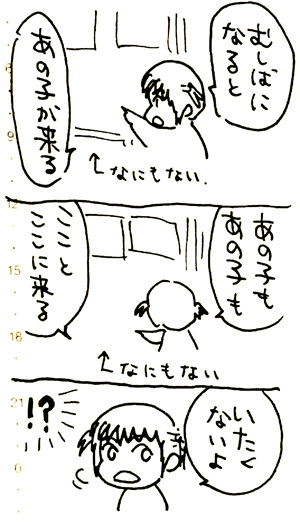 むしばに
なると
あの子が来る
↑なにもない.
9
12
あの子も
あの子も
ここと
ここに来る
15
18
↑なにもない
いたく
ないよ
!?
21
0